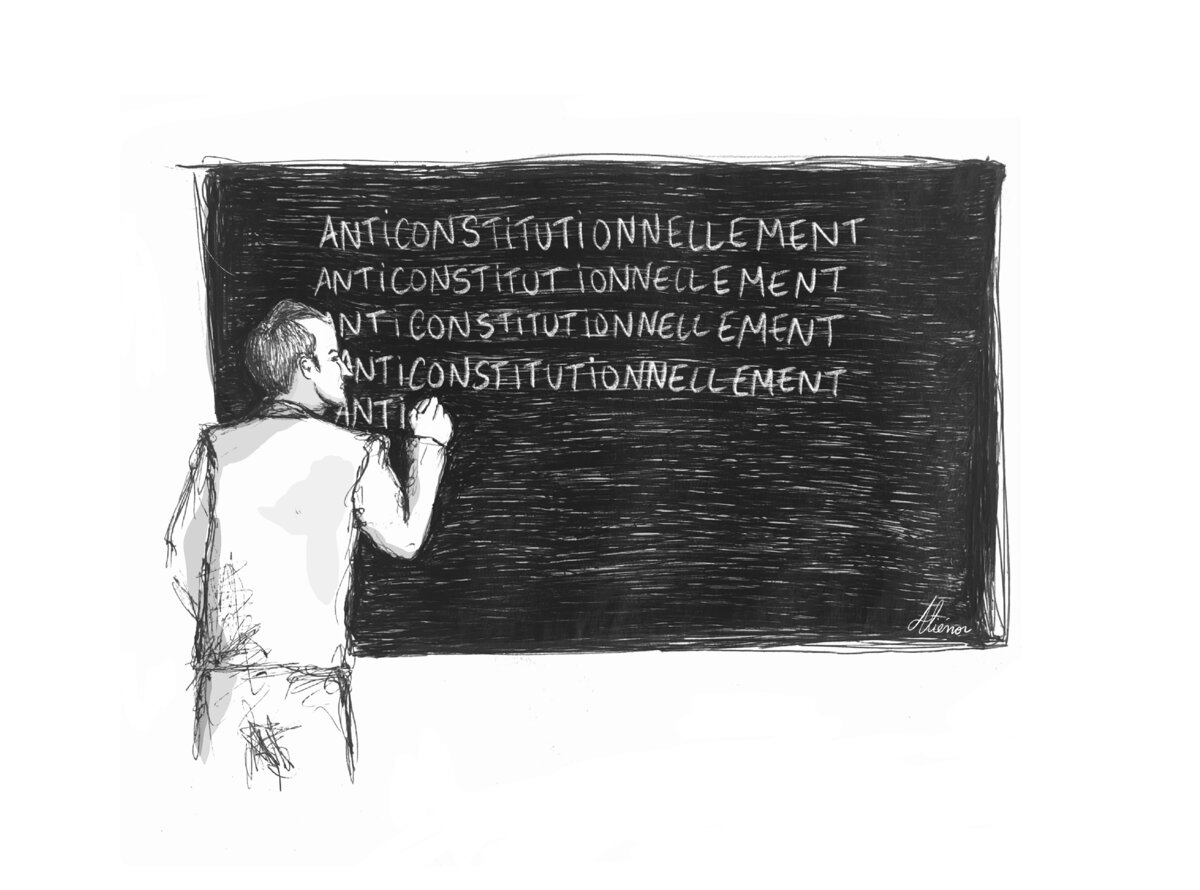 ANTICONSTITUTIONNELLEMENT
ANTICONSTITUTIONNELLEMENT
ANTICONSTITUTIONNELLEMENT
ANTICONSTITUTIONNELLEMENT
ANTI
Aliénor